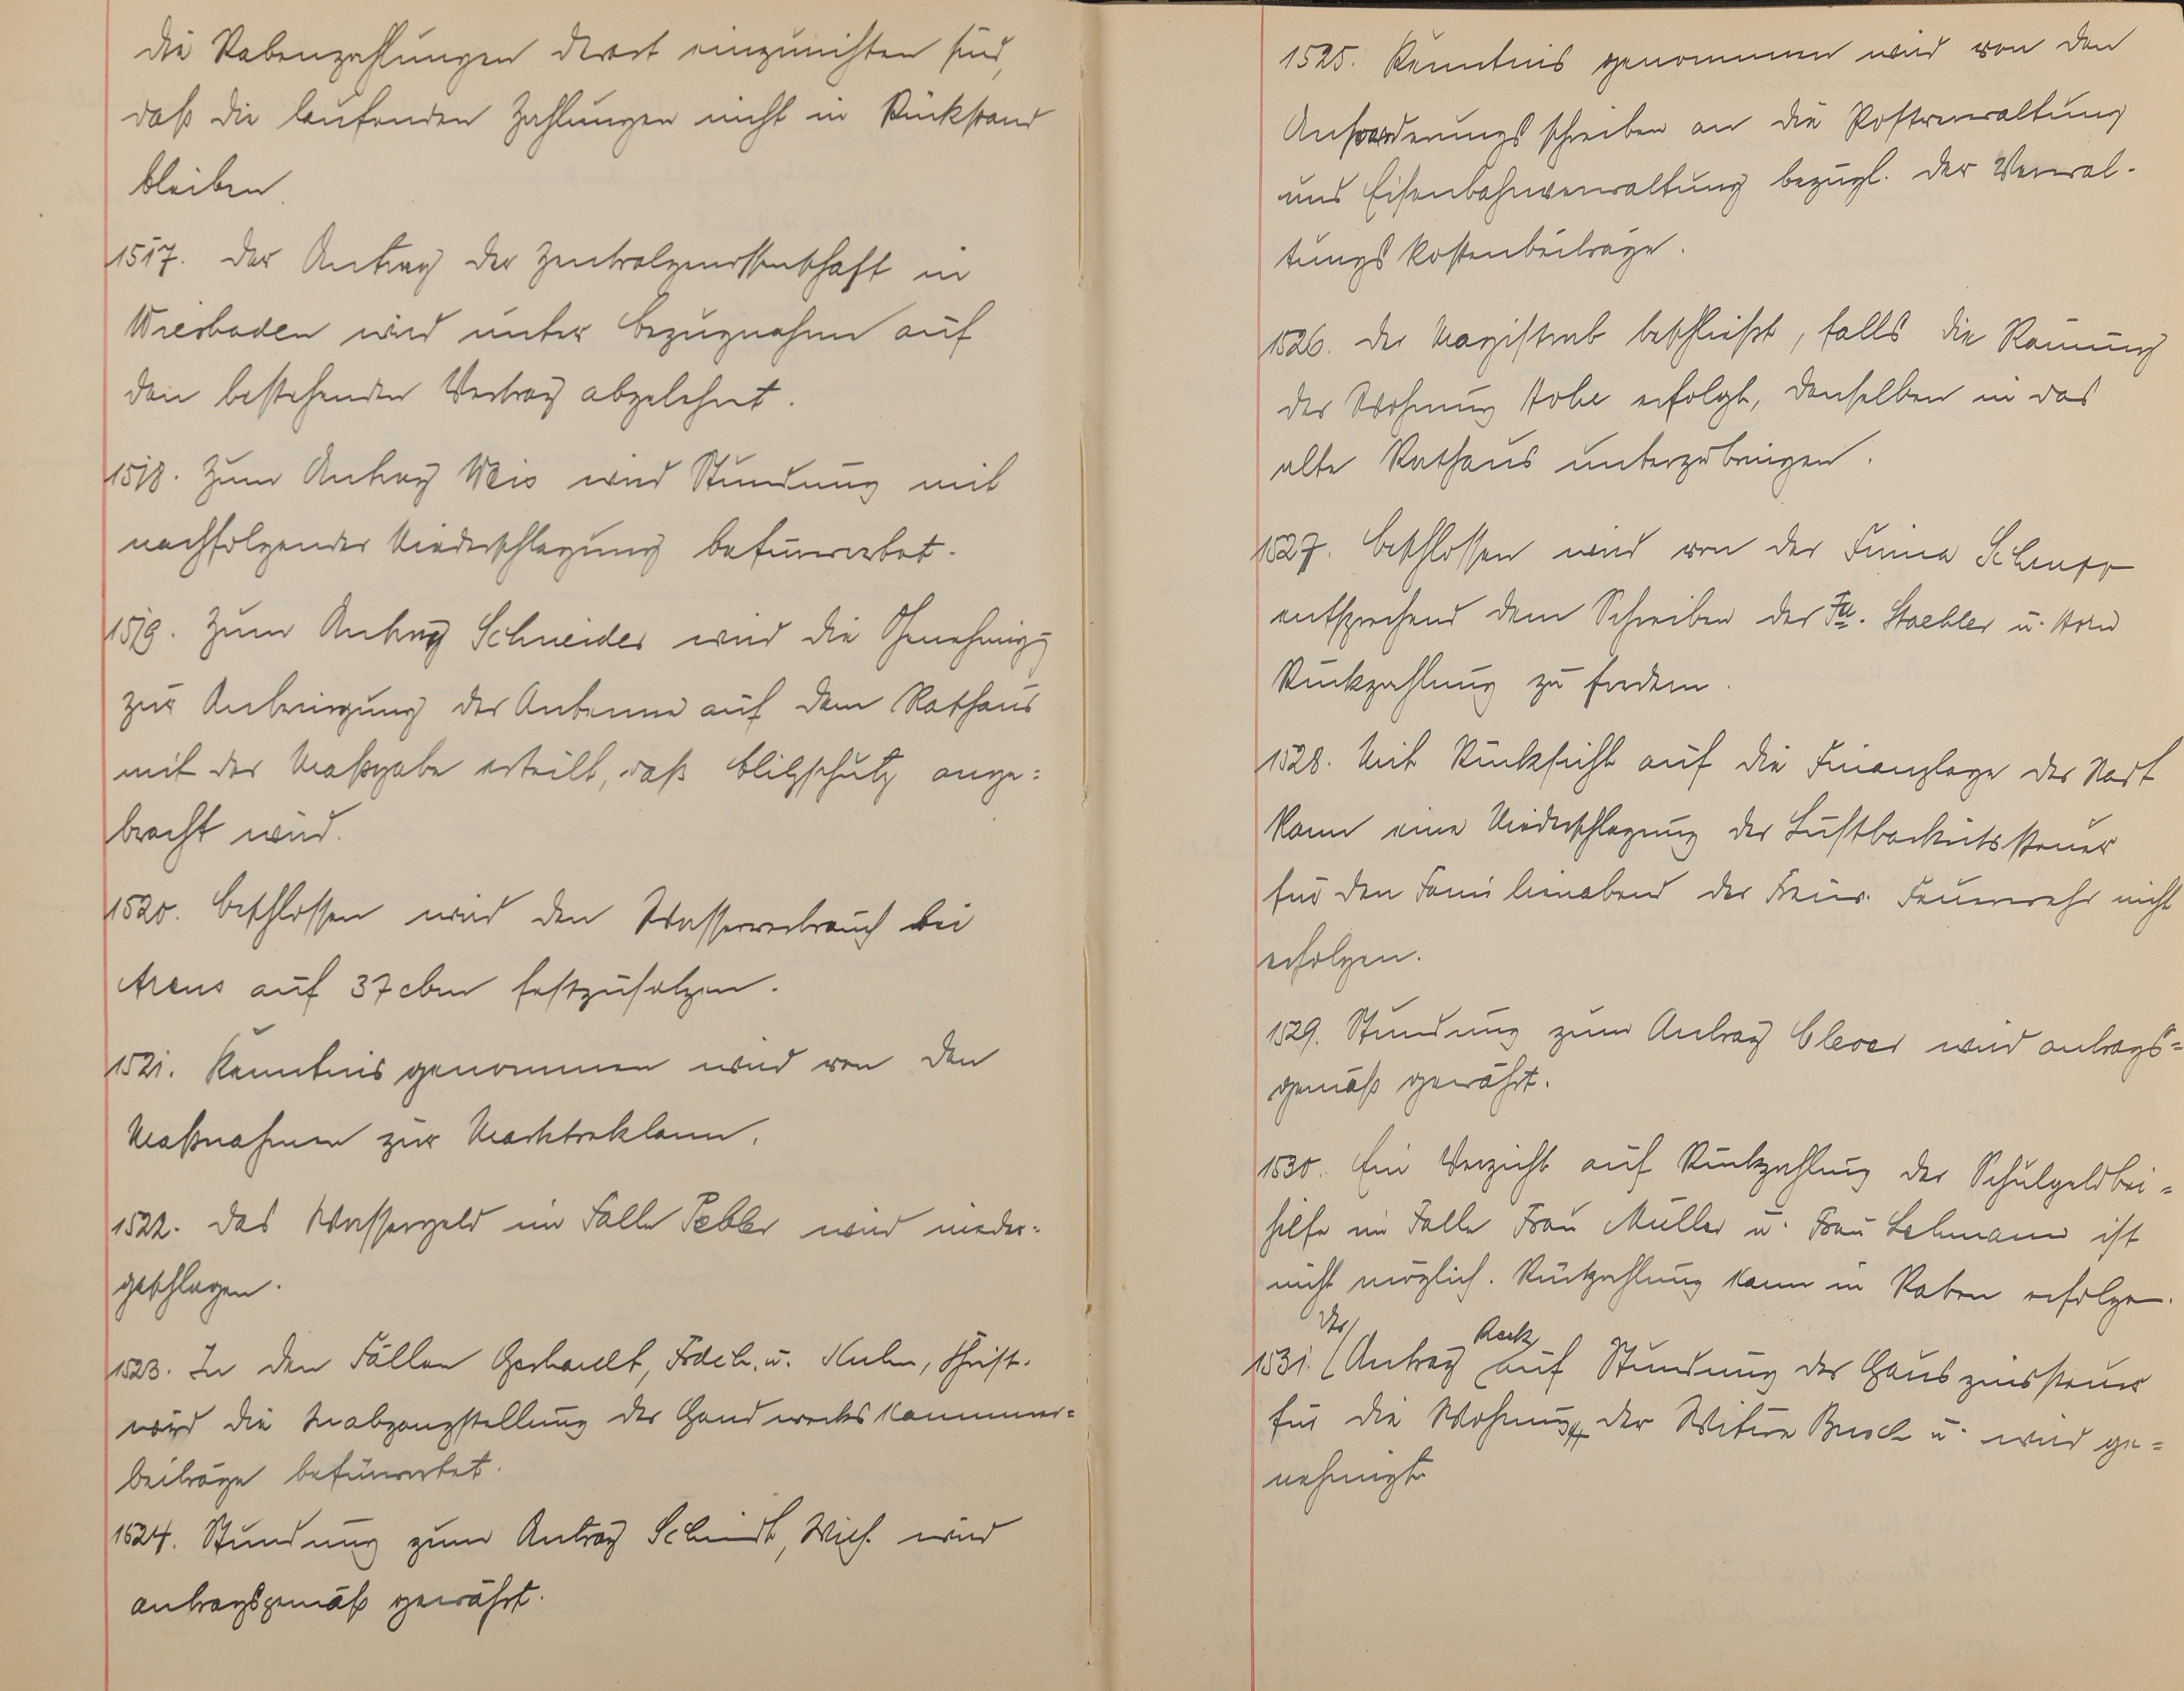 die Ratenzahlungen derart einzurichten sind,
daß die laufenden Zahlungen nicht in Rückstand
bleiben.
1517. Der Antrag der Zentralgenossenschaft in
Wiesbaden wird unter Bezugnahme auf
den bestehenden Vertrag abgelehnt.
1518. Zum Antrag Weis wird Stundung mit
nachfolgender Niederschlagung befürwortet.
1519. Zum Antrag Schneider wird die Genehmigg
zur Anbringung der Antenne auf dem Rathaus
mit der Maßgabe erteilt, daß Blitzschutz ange=
bracht wird.
1520. Beschlossen wird den Wasserverbrauch bei
Arens auf 37 cbm festzusetzen.
1521. Kenntnis genommen wird von den
Maßnahmen zur Marktreklame.
1522. Das Wassergeld im Falle Pebler wird nieder=
geschlagen.
1523. In den Fällen Gerhardt, Frdch. u. Kuhn, Christ.
wird die Inabgangstellung der Handwerkskammer=
beiträge befürwortet.
1524. Stundung zum Antrag Schmidt, Wilh. wird
antragsgemäß gewährt.
1525. Kenntnis genommen wird von den
Anforderungsschreiben an die Postverwaltung
und Eisenbahnverwaltung bezügl. der Verwal-
tungskostenbeiträge.
1526. Der Magistrat beschließt, falls die Räumung
der Wohnung Hobe erfolgt, denselben in das
alte Rathaus unterzubringen.
1527. Beschlossen wird von der Firma Schupp
entsprechend dem Schreiben der Fa. Staebler u. Horn
Rückzahlung zu fordern.
1528. Mit Rücksicht auf die Finanzlage der Stadt
kann eine Niederschlagung der Lustbarkeitssteuer
für den Familienabend der Freiw. Feuerwehr nicht
erfolgen.
1529. Stundung zum Antrag Clever wird antrags=
gemäß gewährt.
1530. Ein Verzicht auf Rückzahlung der Schulgeldbei=
hilfe im Falle Frau Müller u. Frau Lehmann ist
nicht möglich. Rückzahlung kann in Raten erfolgen.
1531. Der Antrag Rack auf Stundung der Hauszinssteuer
für die Wohnung der Witwe Busch u. wird ge=
nehmigt.